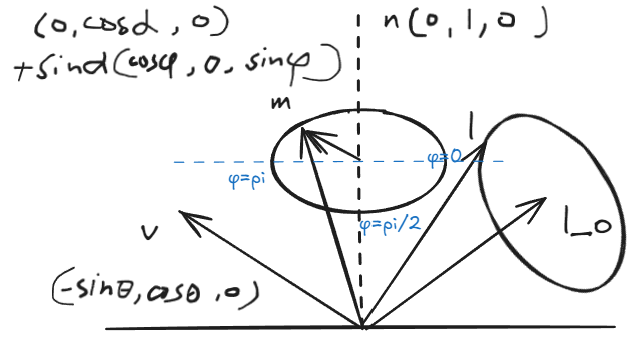 (0, cosα, 0)
+sinα(cosφ, 0, sinφ)
n(0, 1, 0)
m
l
φ=0
φ=pi
φ=pi/2
L_0
v
(-sinθ, cosθ, 0)